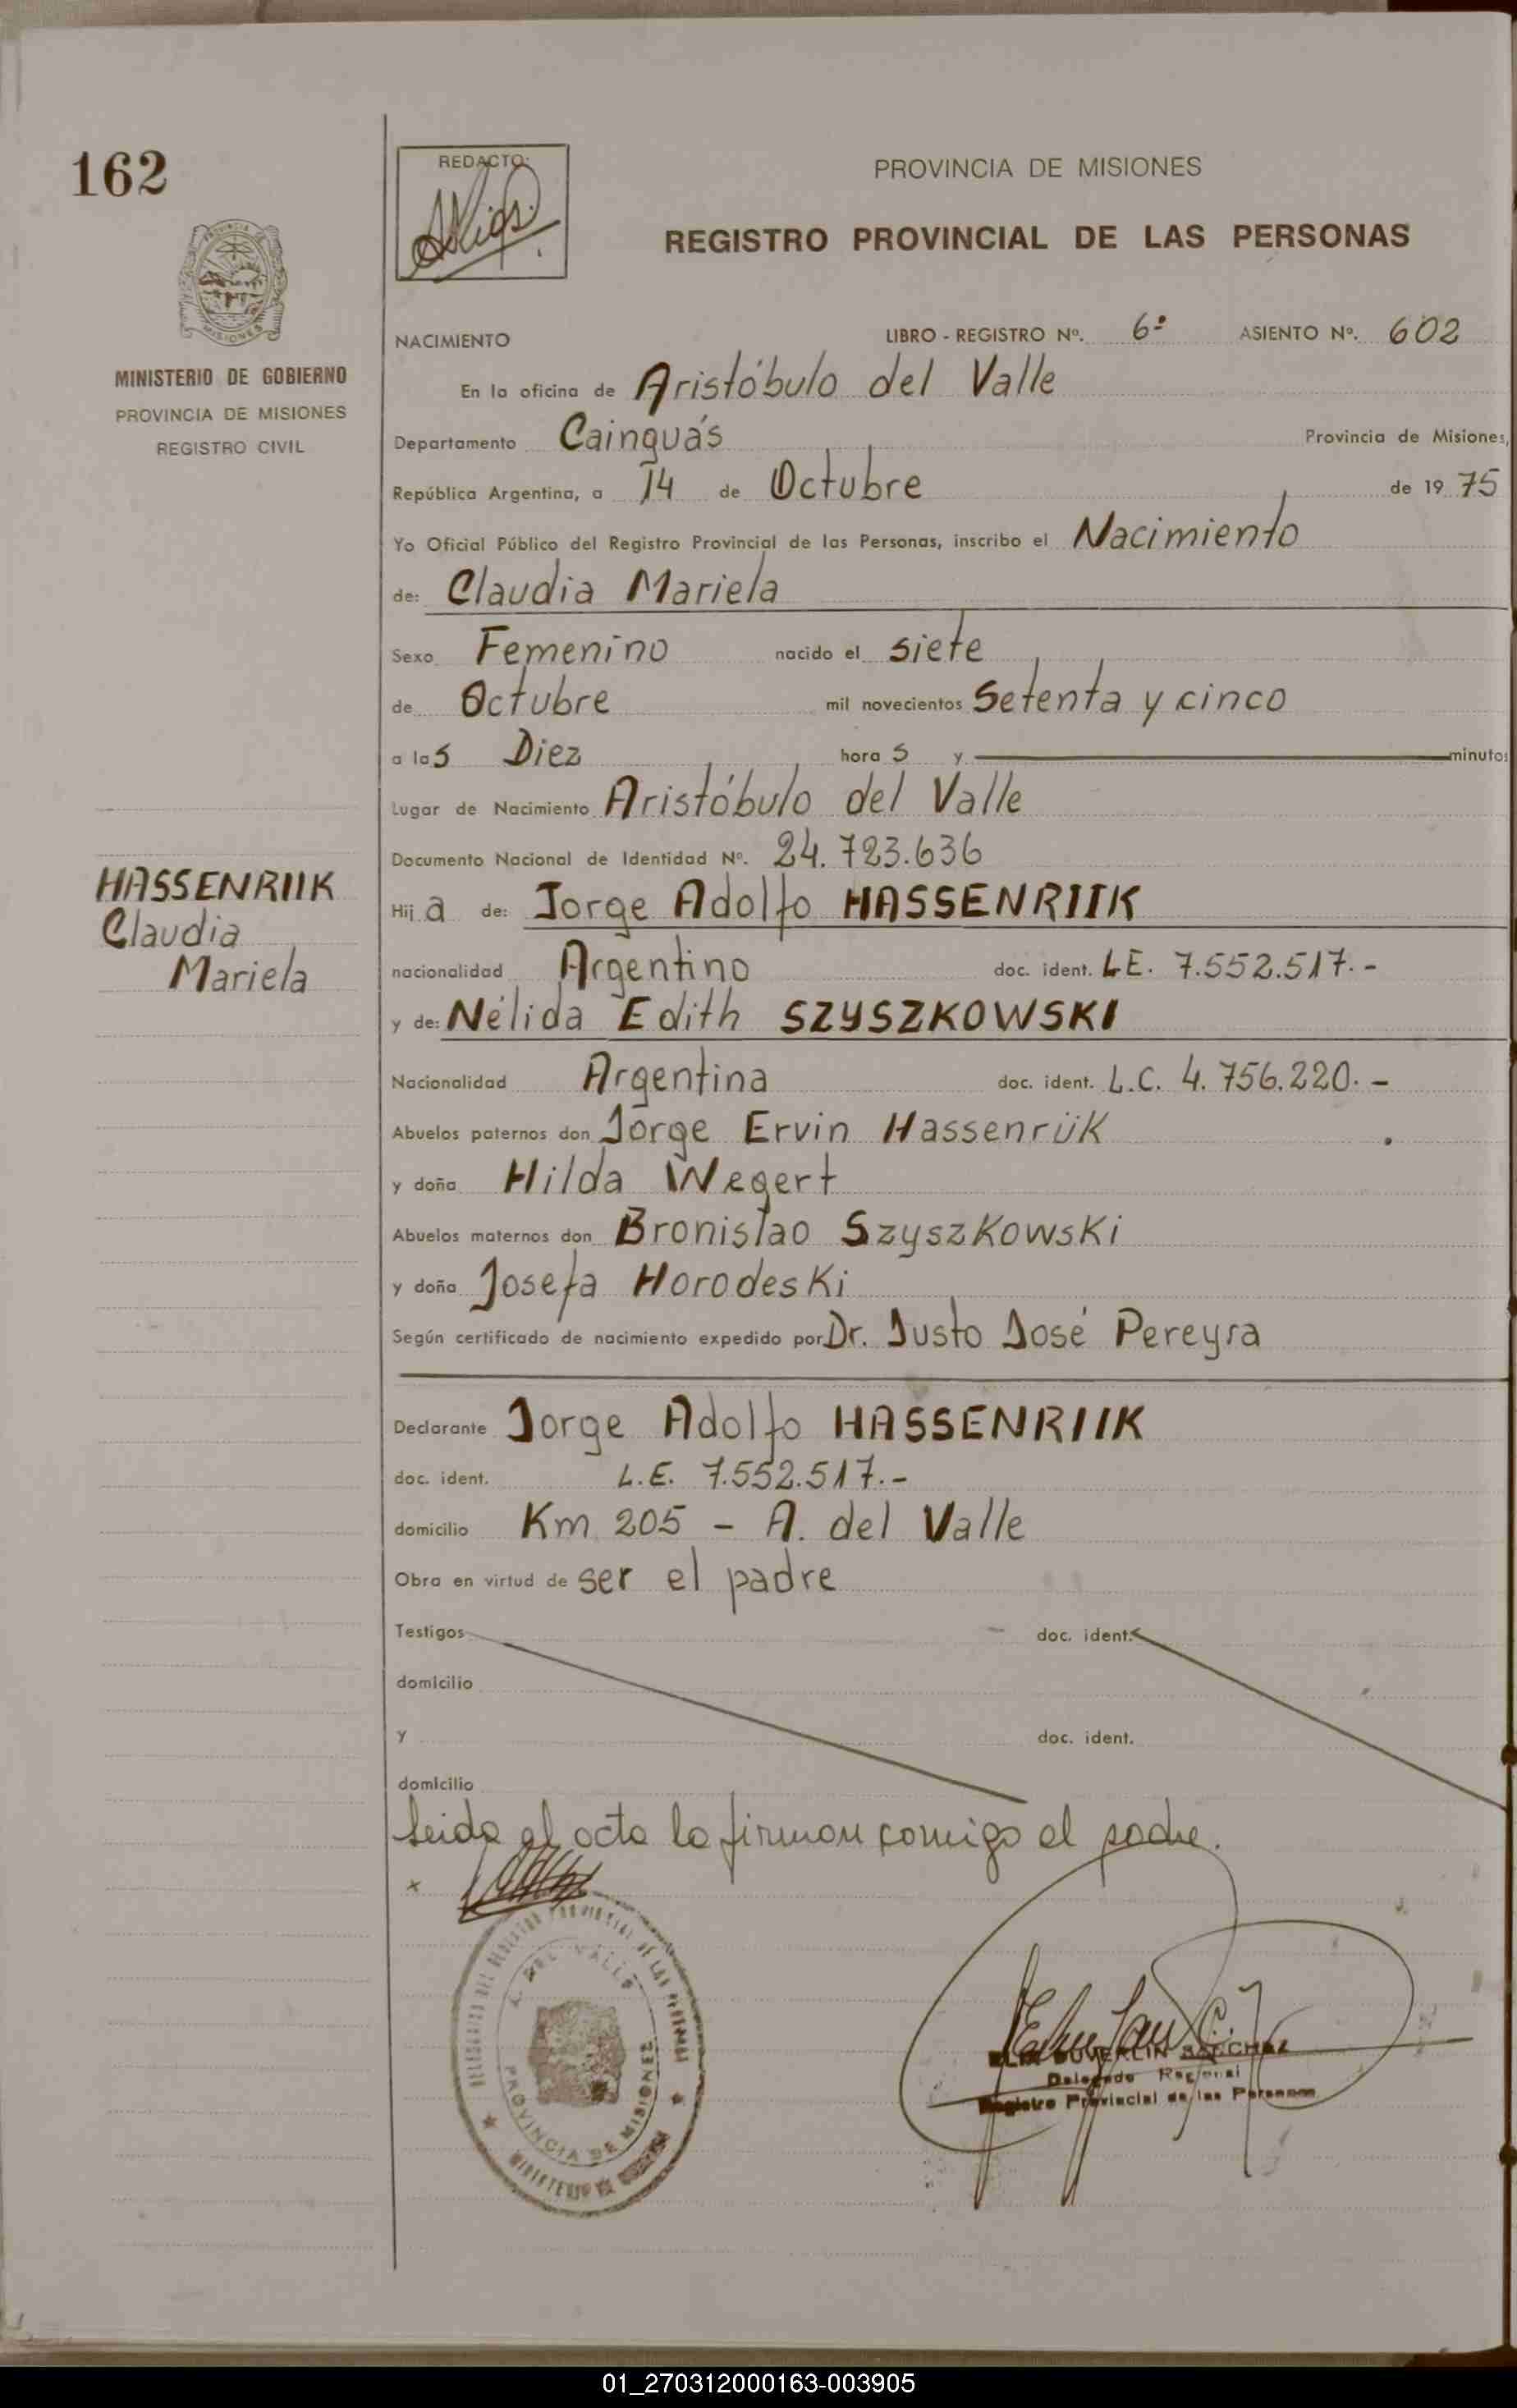 162
REDACTO:
PROVINCIA DE MISIONES
REGISTRO PROVINCIAL DE LAS PERSONAS
MISIONES
MINISTERIO DE GOBIERNO
PROVINCIA DE MISIONES
REGISTRO CIVIL
NACIMIENTO LIBRO - REGISTRO Nº. 6º ASIENTO Nº. 602
En la oficina de Aristóbulo del Valle
Departamento Cainguás Provincia de Misiones,
República Argentina, a 14 de Octubre de 1975
Yo Oficial Público del Registro Provincial de las Personas, inscribo el Nacimiento
de: Claudia Mariela
Sexo Femenino nacido el siete
de Octubre mil novecientos Setenta y cinco
a las Diez horas y minutos
Lugar de Nacimiento Aristóbulo del Valle
Documento Nacional de Identidad Nº. 24.723.636
HASSENRIIK
Claudia
Mariela
Hija de: Jorge Adolfo HASSENRIIK
nacionalidad Argentino doc. ident. LE. 7.552.517.-
y de: Nélida Edith SZYSZKOWSKI
Nacionalidad Argentina doc. ident. L.C. 4.756.220.-
Abuelos paternos don Jorge Ervin Hassenriik
y doña Hilda Wegert
Abuelos maternos don Bronislao Szyszkowski
y doña Josefa Horodeski
Según certificado de nacimiento expedido por Dr. Justo José Pereyra
Declarante Jorge Adolfo HASSENRIIK
doc. ident. L.E. 7.552.517.-
domicilio Km 205 - A. del Valle
Obra en virtud de ser el padre
Testigos doc. ident.
domicilio
y doc. ident.
domicilio
Leida el acta la firman comigo el padre.
x
A. DEL VALLE
PROVINCIA DE MISIONES
Delegado Regional
Registro Provincial de las Personas
01_270312000163-003905